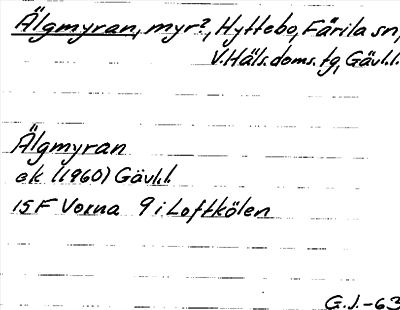 Älgmyran, myr?, Hyttebo, Färila sn,
V.Häls.doms.tg, Gävl.l.
Älgmyran
ek (1960) Gävl.l.
15F Voxna 9 i Loftkölen
G.J.-63